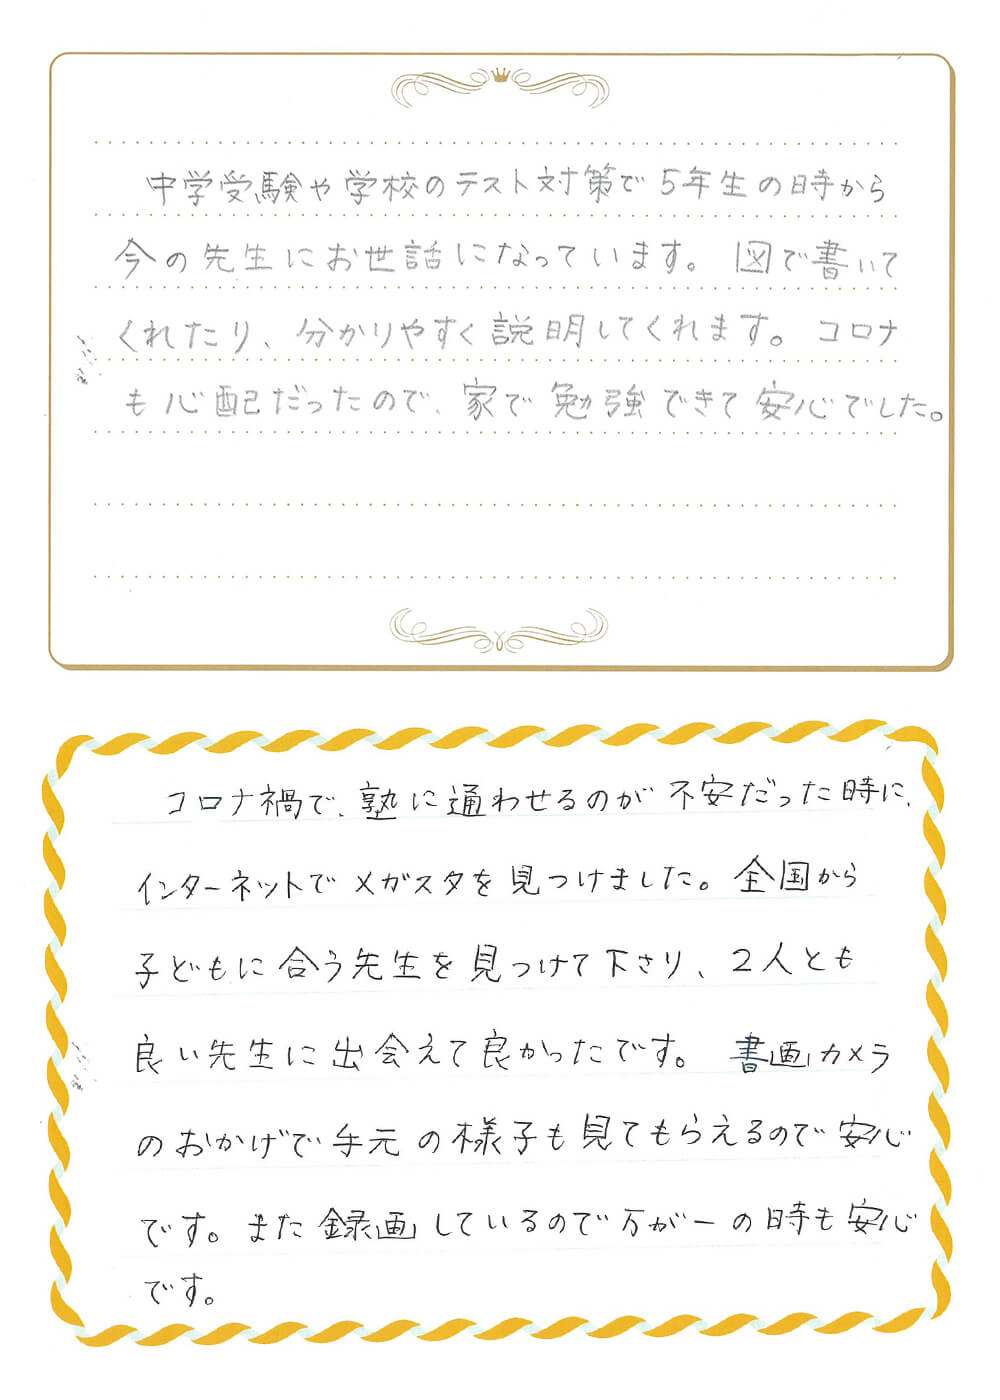 中学受験や学校のテスト対策で5年生の時から
今の先生にお世話になっています。図で書いて
くれたり、分かりやすく説明してくれます。コロナ
も心配だったので、家で勉強できて安心でした。
コロナ禍で、塾に通わせるのが不安だった時に、
インターネットでメガスタを見つけました。全国から
子どもに合う先生を見つけて下さり、2人とも
良い先生に出会えて良かったです。書画カメラ
のおかげで手元の様子も見てもらえるので安心
です。また録画しているので万が一の時も安心
です。